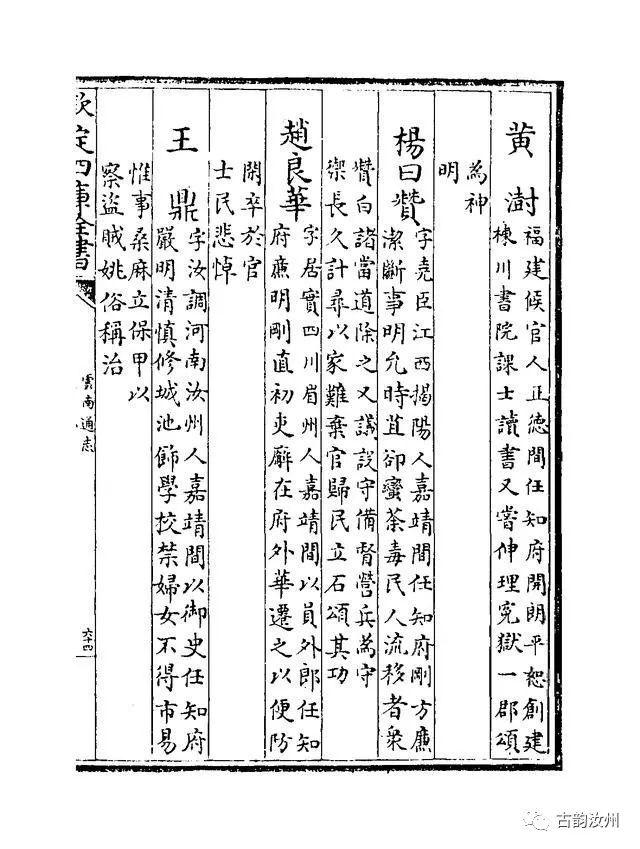 黄澍
福建候官人正德間任知府開朗平恕創建
棟川書院課士讀書又嘗伸理寃獄一郡頌
為神
明
楊曰贊
字堯臣江西揭陽人嘉靖間任知府剛方廉
潔斷事明允時苴卻蠻荼毒民人流移者衆
贊白諸當道除之又議設守備督營兵為守
禦長久計尋以家難棄官歸民立石頌其功
趙良華
字居實四川眉州人嘉靖間以員外郎任知
府廉明剛直初吏廨在府外華遷之以便防
閑卒於官
士民悲悼
王鼎
字汝調河南汝州人嘉靖間以御史任知府
嚴明清慎修城池飾學校禁婦女不得市易
惟事桑麻立保甲以
察盜賊姚俗稱治
欽定四庫全書
雲南通志
六十四
古韵汝州